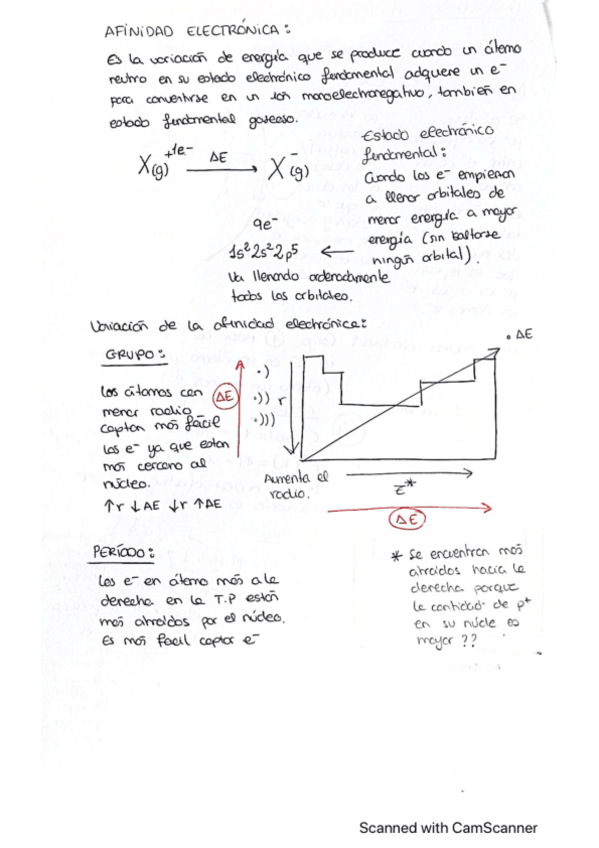 AFINIDAD ELECTRÓNICA:
Es la variación de energía que se produce cuando un átomo
neutro en su estado electrónico fundamental adquiere un e-
para convertirse en un ión monoelectronegativo, también en
estado fundamental gaseoso.
X(g) +1e- ΔE → X-(g)
Estado electrónico
fundamental:
Cuando los e- empiezan
a llenar orbitales de
menor energía a mayor
energía (sin saltarse
ningún orbital).
9e-
1s² 2s² 2p⁵ ←
Va llenando ordenadamente
todos los orbitales.
Variación de la afinidad electrónica:
GRUPO:
Los átomos con
menor radio
captan más fácil
los e- ya que estan
más cercano al
núcleo.
↑r ↓AE ↓r ↑AE
ΔE
·)
·)) r
·)))
Aumenta el
radio.
· ΔE
Z*
ΔE
PERÍODO:
Los e- en átomo más a la
derecha en la T.P están
más atraídos por el núcleo.
Es más facil captar e-
* Se encuentran más
atraidos hacia la
derecha porque
la cantidad de p+
en su núcle es
mayor ??
Scanned with CamScanner